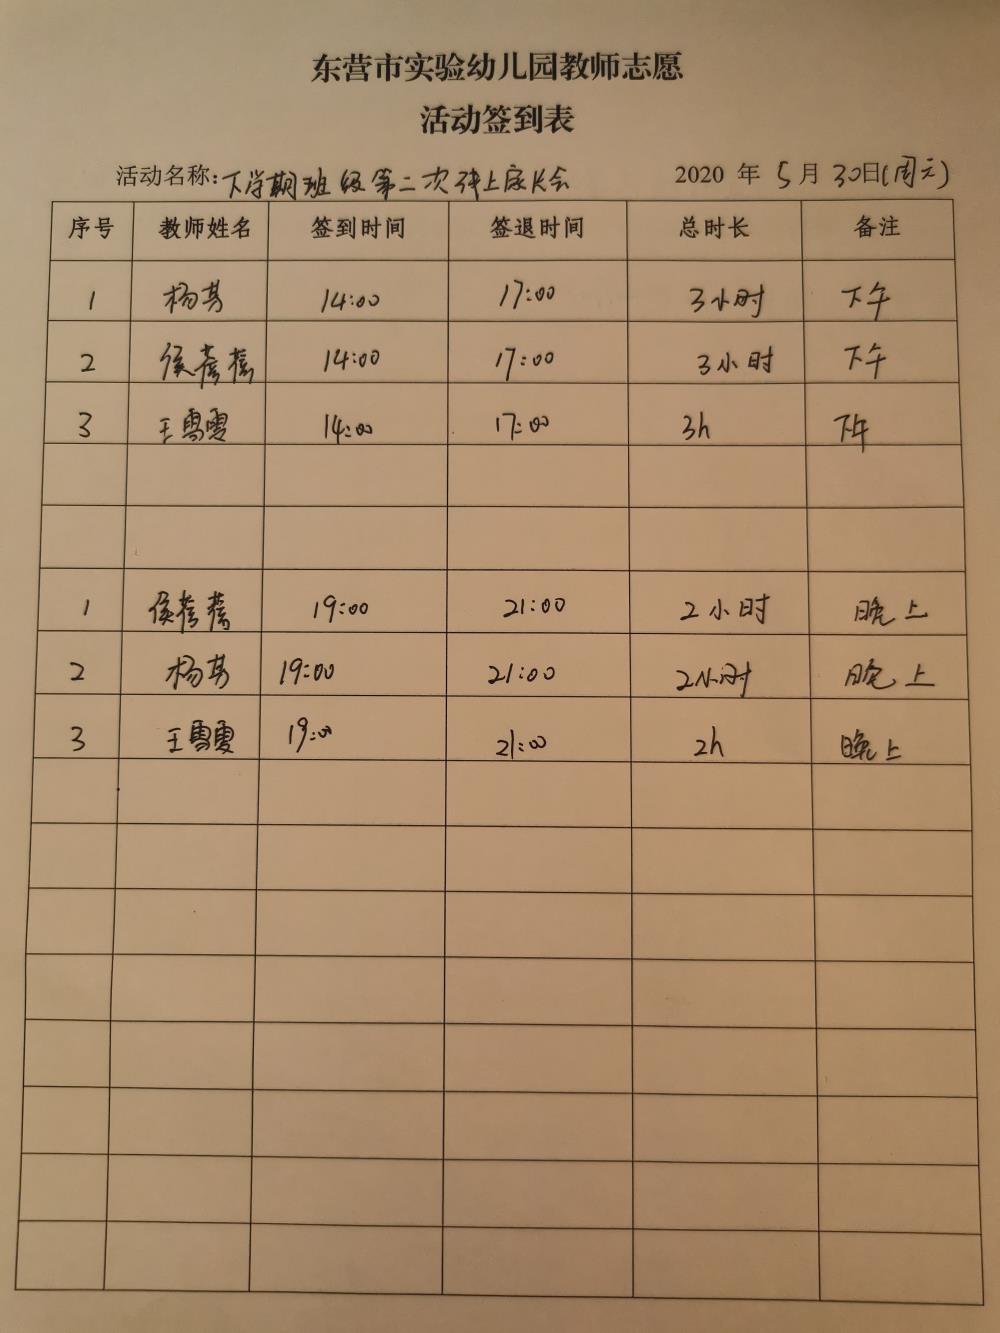 东营市实验幼儿园教师志愿
活动签到表
活动名称:下学期班级第二次线上家长会 2020 年 5月 30日(周六)
序号 教师姓名 签到时间 签退时间 总时长 备注
1 杨芳 14:00 17:00 3小时 下午
2 侯蓓蓓 14:00 17:00 3小时 下午
3 王雪雯 14:00 17:00 3h 下午
1 侯蓓蓓 19:00 21:00 2小时 晚上
2 杨芳 19:00 21:00 2小时 晚上
3 王雪雯 19:00 21:00 2h 晚上